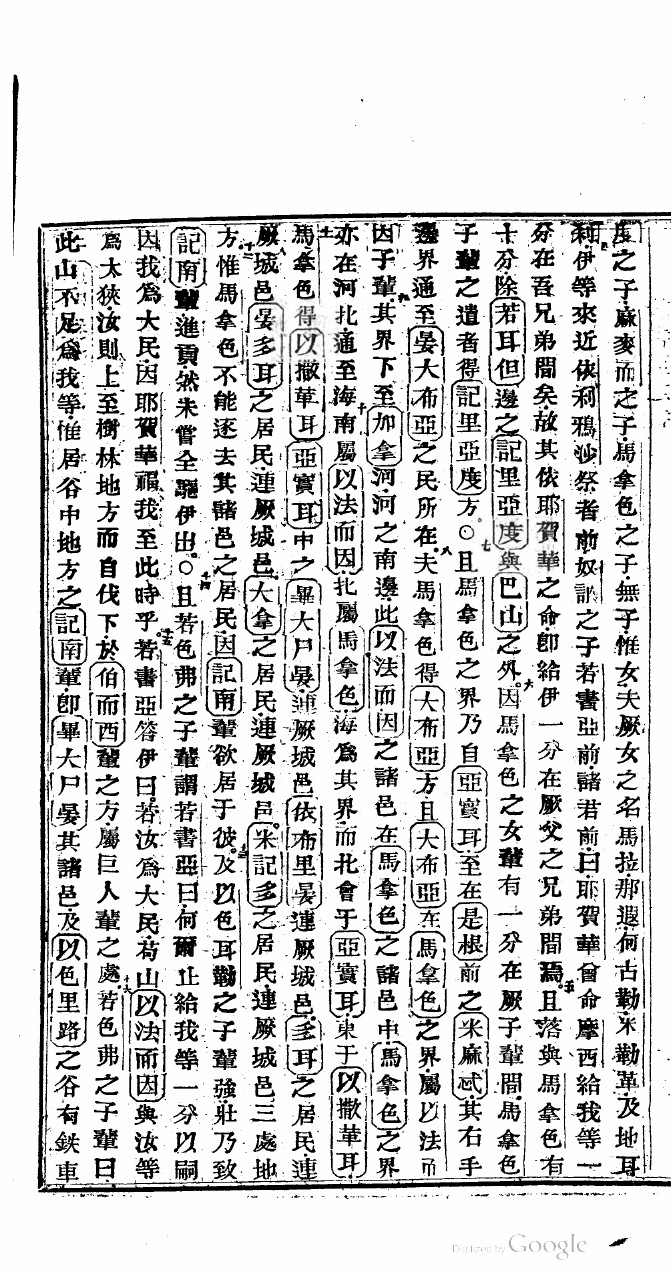 度之子麻麥而之子馬拿色之子無子惟女夫厥女之名馬拉那遐何古勒米勒革及地耳
四 利伊等來近依利鴉沙祭者前奴訊之子若書亞前諸君前曰耶賀華曾命摩西給我等一
分在吾兄弟間矣故其依耶賀華之命即給伊一分在厥父之兄弟間焉五且落與馬拿色有
十分除若耳但邊之記里亞度與巴山之外六因馬拿色之女輩有一分在厥子輩間馬拿色
子輩之遺者得記里亞度方○七且馬拿色之界乃自亞實耳至在是根前之米麻忒其右手
邊界通至晏大布亞之民所在八夫馬拿色得大布亞方且大布亞在馬拿色之界屬以法而
因子輩九其界下至加拿河河之南邊此以法而因之諸邑在馬拿色之諸邑中馬拿色之界
亦在河北通至海十南屬以法而因北屬馬拿色海為其界而北會于亞實耳東于以撒華耳
十一馬拿色得以撒華耳亞實耳中之畢大尸晏連厥城邑依布里晏連厥城邑多耳之居民連
厥城邑晏多耳之居民連厥城邑大拿之居民連厥城邑米記多之居民連厥城邑三處地
方十二惟馬拿色不能逐去其諸邑之居民因記南輩欲居于彼十三及以色耳勒之子輩強壯乃致
記南輩進貢然未嘗全驅伊出○十四且若色弗之子輩謂若書亞曰何爾止給我等一分以嗣
因我為大民因耶賀華福我至此時乎十五若書亞答伊曰若汝為大民葛山以法而因與汝等
為太狹汝則上至樹林地方而自伐下於伯而西輩之方屬巨人輩之處十六若色弗之子輩曰
此山不足為我等惟居谷中地方之記南輩即畢大尸晏其諸邑及以色里路之谷有鉄車
Digitized by Google